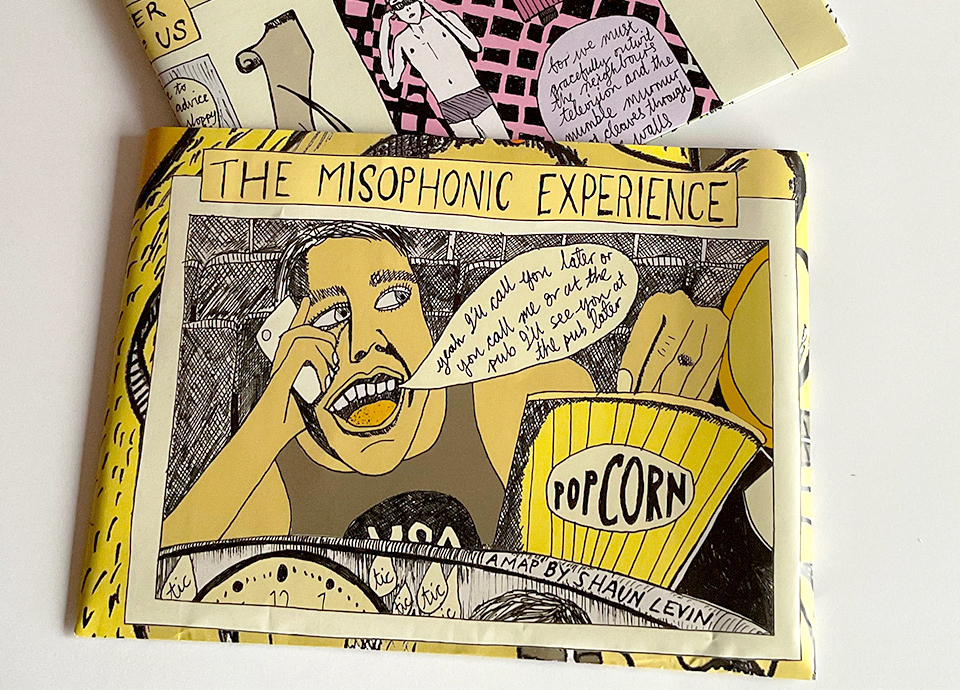 ER
US
to
advice
sloppy
for we must
gracefully outwit
the neighbour's
television and the
mumble murmur
cleaves through
walls
THE MISOPHONIC EXPERIENCE
yeah I'll call you later or
you call me or at the
pub I'll see you at
the pub later
POPCORN
USA
A MAP BY SHAUN LEVIN
tic
tic
tic
tic
12 1